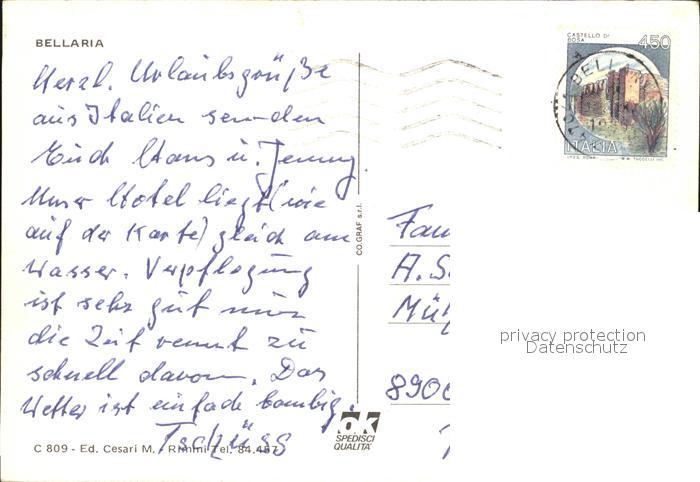 BELLARIA
Herzl. Urlaubsgrüße
aus Italien senden
Euch Hans u. Jenny
Unser Hotel liegt (wie
auf der Karte) gleich am
Wasser. Verpflegung
ist sehr gut nur
die Zeit rennt zu
schnell davon. Das
Wetter ist einfach bombig.
Tschüss
C 809 - Ed. Cesari M. - Rimini Tel. 84.487
CO.GRAF s.r.l.
ok
SPEDISCI
QUALITA'
CASTELLO DI
BOSA
450
BELL
ITALIA
I.P.Z.S. ROMA
Fam
A. S
Mü
8900
privacy protection
Datenschutz